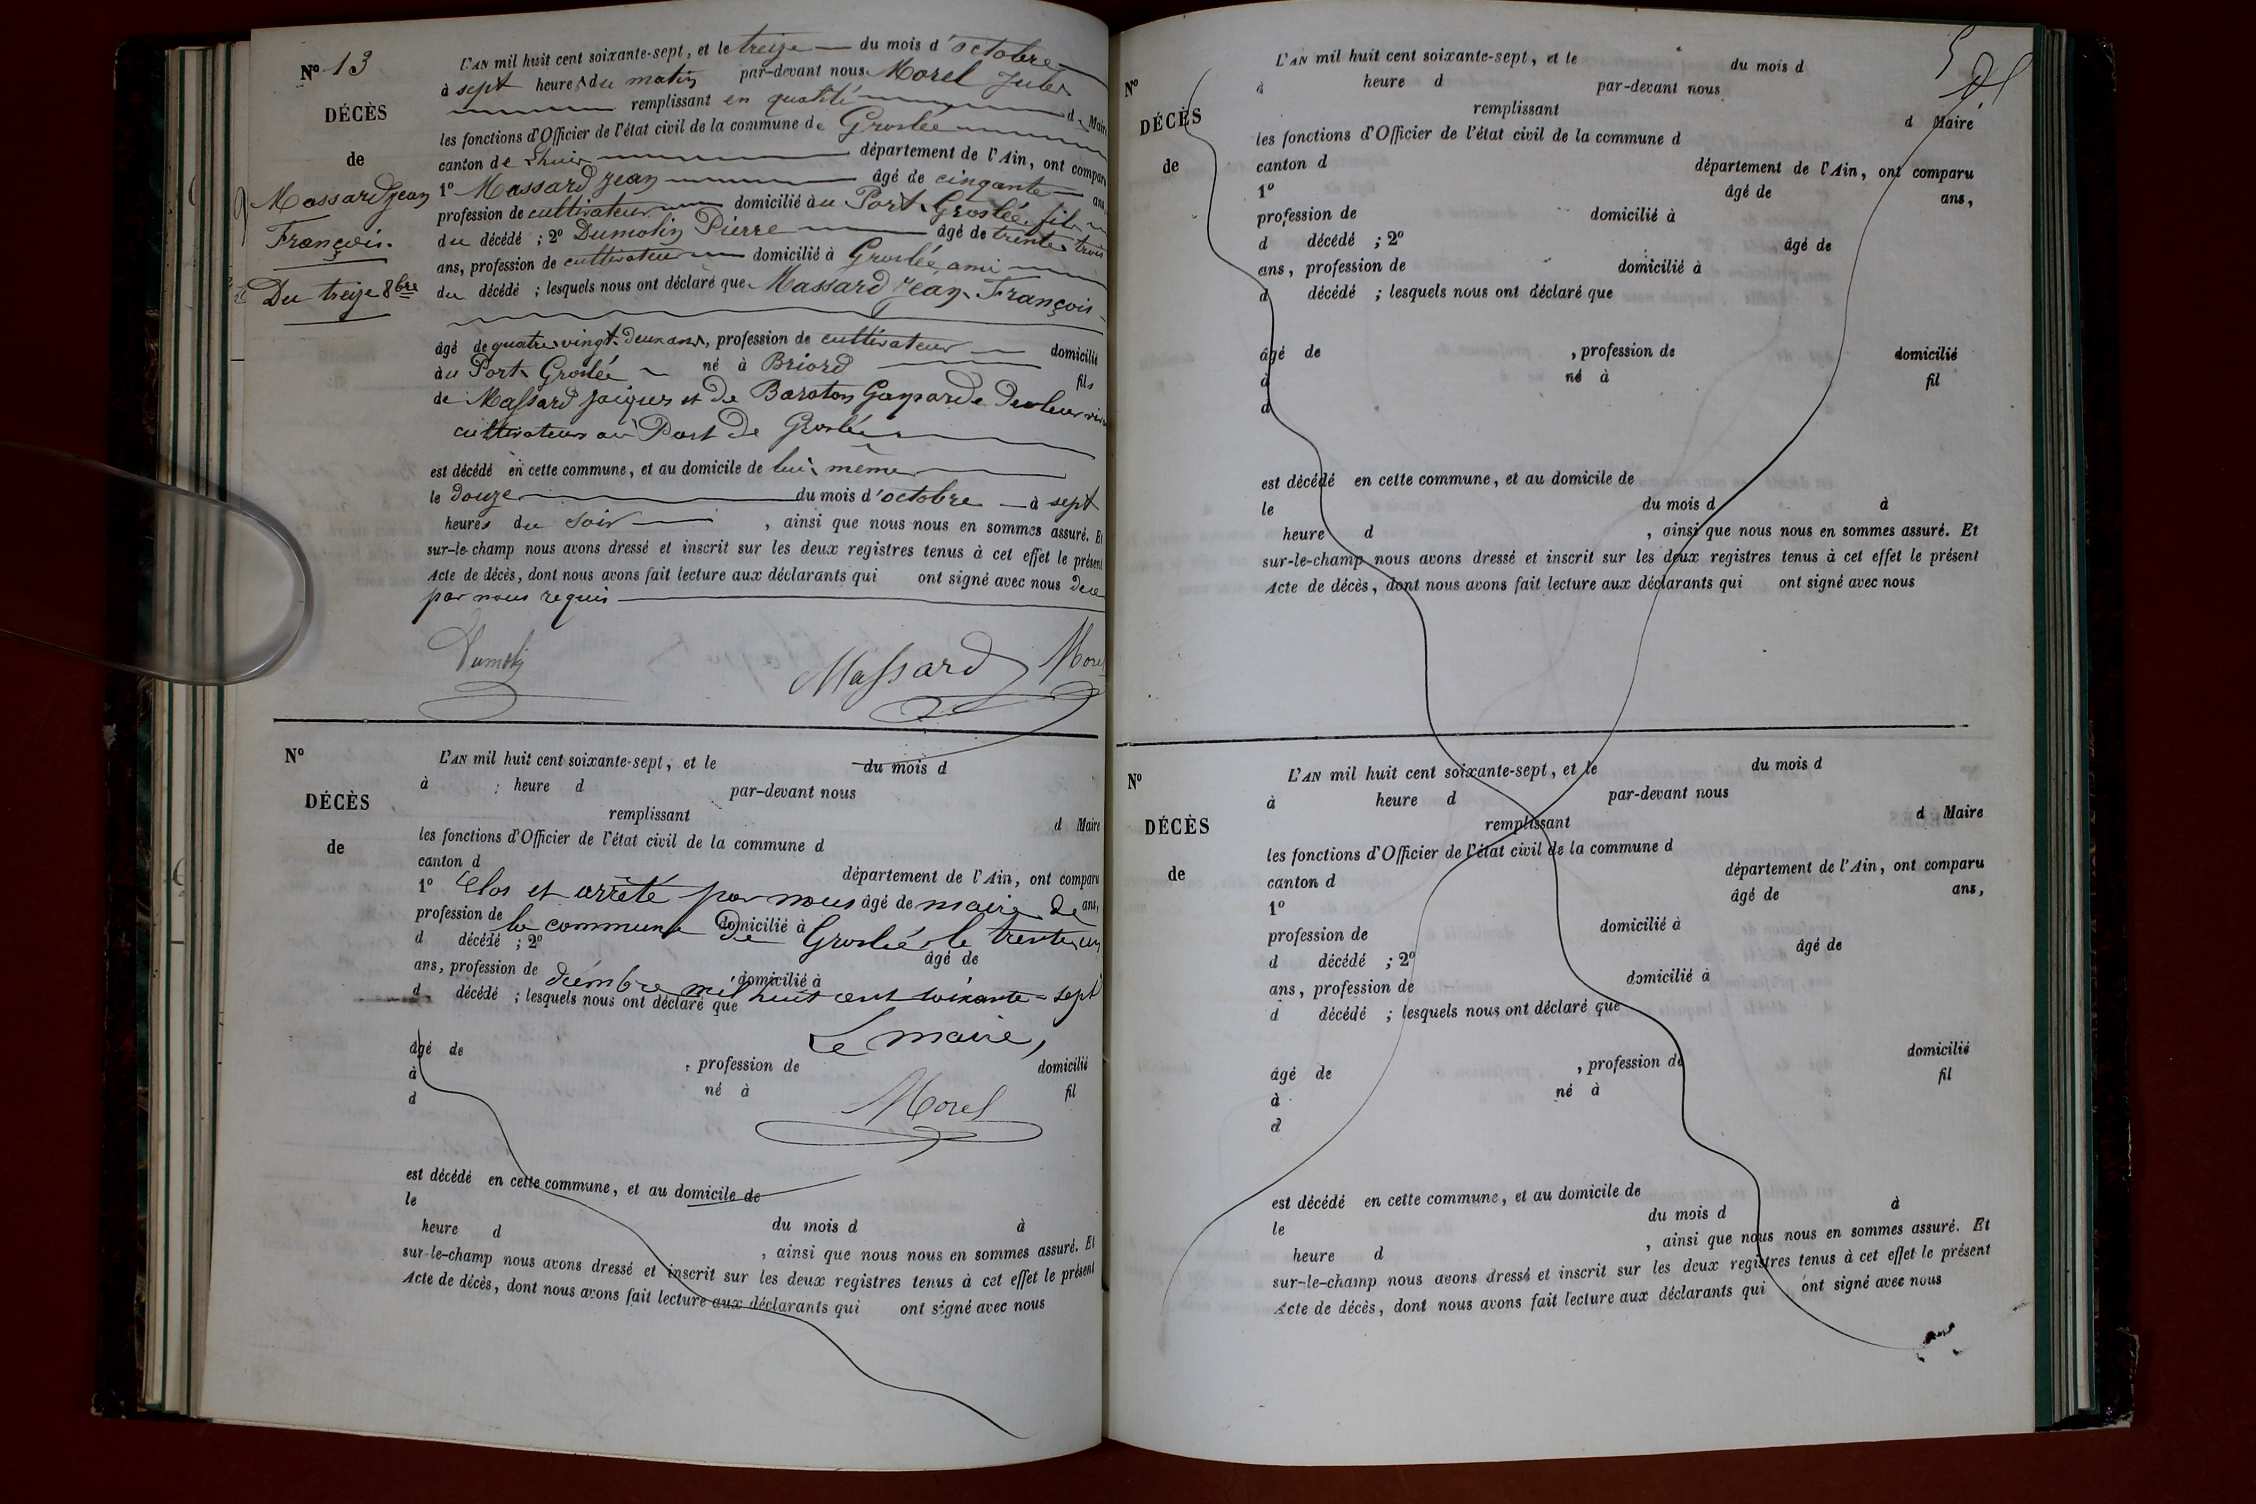 N° 13
DÉCÈS
de
Massard Jean
François.
Du treize 8bre
L'AN mil huit cent soixante-sept, et le treize du mois d'octobre
à sept heures du matin par-devant nous Morel Jules
remplissant en qualité d Maire
les fonctions d'Officier de l'état civil de la commune de Groslée
canton de Lhuis département de l'Ain, ont comparu
1° Massard Jean âgé de cinqante ans
profession de cultivateur domicilié au Port Groslée, fils
du décédé ; 2° Dumolin Pierre âgé de trente trois
ans, profession de cultivateur domicilié à Groslée, ami
du décédé ; lesquels nous ont déclaré que Massard Jean François
âgé de quatre vingt deux ans, profession de cultivateur domicilié
au Port Groslée né à Briord fils
de Massard Jacques et de Baraton Gasparde
cultivateurs au Port de Groslée
est décédé en cette commune, et au domicile de lui même
le douze du mois d'octobre à sept
heures du soir , ainsi que nous nous en sommes assuré. Et
sur-le-champ nous avons dressé et inscrit sur les deux registres tenus à cet effet le présent
Acte de décès, dont nous avons fait lecture aux déclarants qui ont signé avec nous de ce
par nous requis
Dumolin Massard Morel
N°
DÉCÈS
de
L'AN mil huit cent soixante-sept, et le du mois d
à heure d par-devant nous
remplissant d Maire
les fonctions d'Officier de l'état civil de la commune d
canton d département de l'Ain, ont comparu
1° Clos et arrêté par nous âgé de maire de ans,
profession de la commune domicilié à de Groslée le trente un
d décédé ; 2° âgé de
ans, profession de décembre domicilié à
mil huit cent soixante-sept
d décédé ; lesquels nous ont déclaré que
Le maire,
âgé de , profession de domicilié
à né à fil
d
Morel
est décédé en cette commune, et au domicile de
le du mois d à
heure d , ainsi que nous nous en sommes assuré. Et
sur-le-champ nous avons dressé et inscrit sur les deux registres tenus à cet effet le présent
Acte de décès, dont nous avons fait lecture aux déclarants qui ont signé avec nous
N°
DÉCÈS
de
L'AN mil huit cent soixante-sept, et le du mois d
à heure d par-devant nous
remplissant d Maire
les fonctions d'Officier de l'état civil de la commune d
canton d département de l'Ain, ont comparu
1° âgé de ans,
profession de domicilié à
d décédé ; 2° âgé de
ans, profession de domicilié à
d décédé ; lesquels nous ont déclaré que
âgé de , profession de domicilié
à né à fil
d
est décédé en cette commune, et au domicile de
le du mois d à
heure d , ainsi que nous nous en sommes assuré. Et
sur-le-champ nous avons dressé et inscrit sur les deux registres tenus à cet effet le présent
Acte de décès, dont nous avons fait lecture aux déclarants qui ont signé avec nous
N°
DÉCÈS
de
L'AN mil huit cent soixante-sept, et le du mois d
à heure d par-devant nous
remplissant d Maire
les fonctions d'Officier de l'état civil de la commune d
canton d département de l'Ain, ont comparu
1° âgé de ans,
profession de domicilié à
d décédé ; 2° âgé de
ans, profession de domicilié à
d décédé ; lesquels nous ont déclaré que
âgé de , profession de domicilié
à né à fil
d
est décédé en cette commune, et au domicile de
le du mois d à
heure d , ainsi que nous nous en sommes assuré. Et
sur-le-champ nous avons dressé et inscrit sur les deux registres tenus à cet effet le présent
Acte de décès, dont nous avons fait lecture aux déclarants qui ont signé avec nous